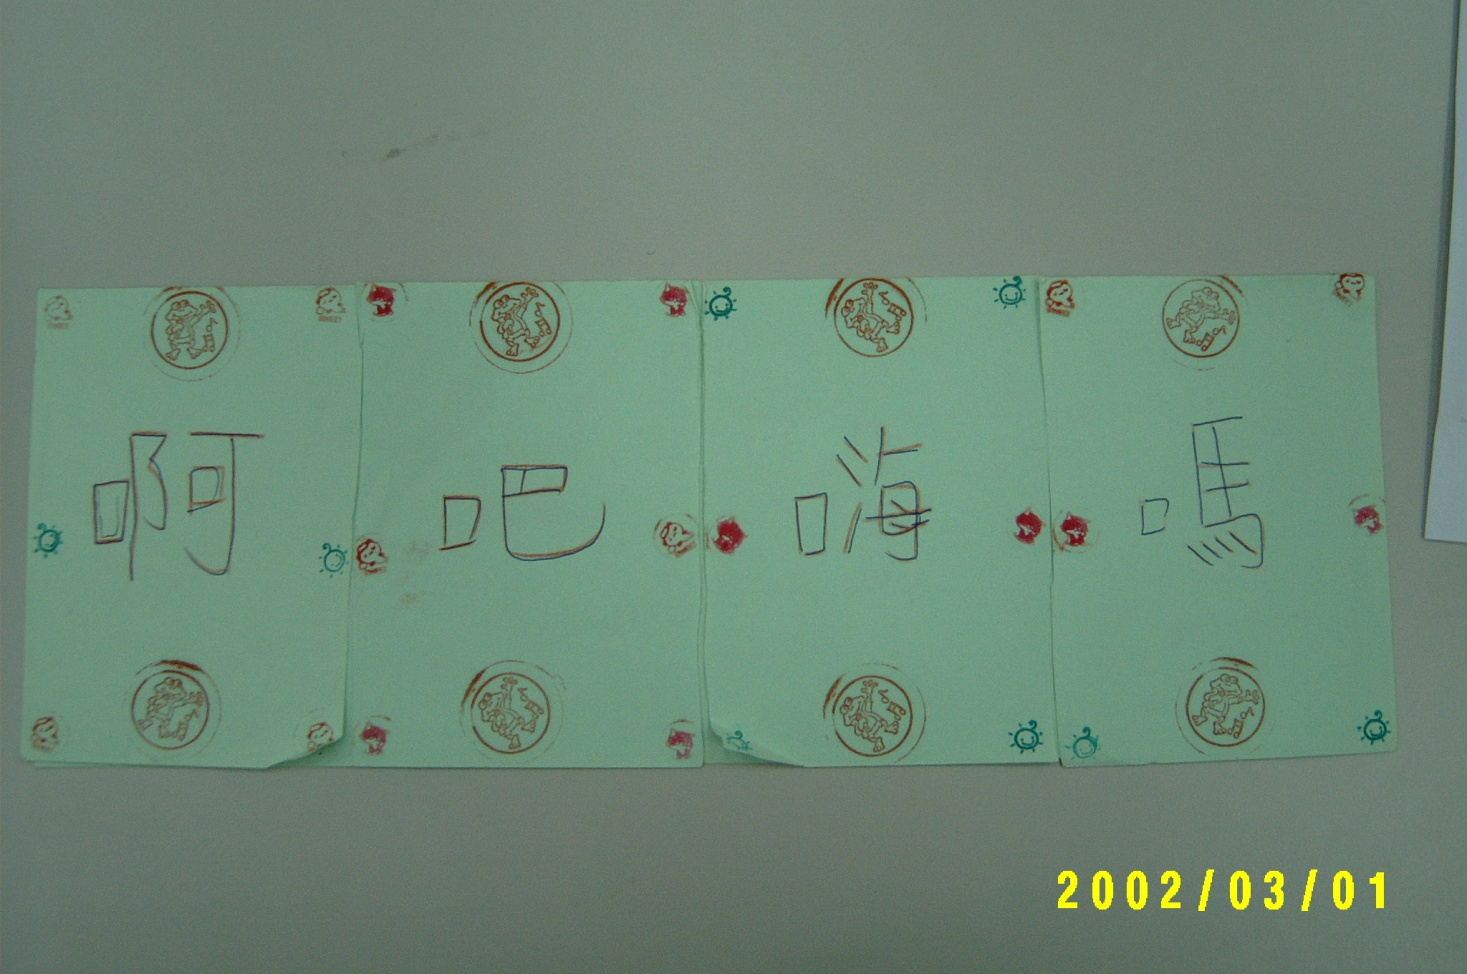 啊 吧 嗨 嗎
2002/03/01